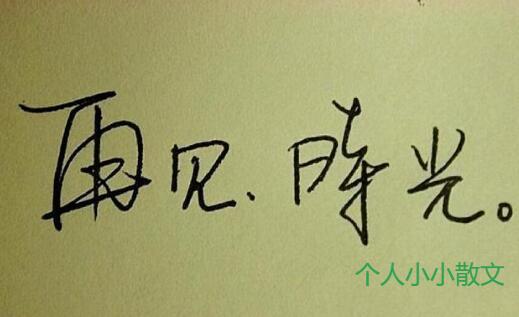 再见、時光。
个人小小散文